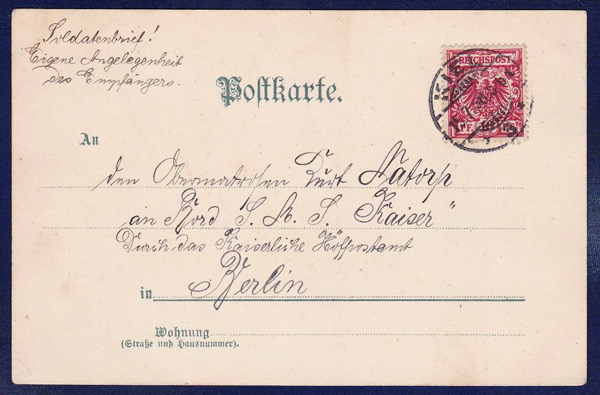 Soldatenbrief!
Eigene Angelegenheit
des Empfängers.
Postkarte.
REICHSPOST
PF
KIEL
An
den Obermatrosen Curt Natorp
an Bord S. M. S. „Kaiser"
Durch das Kaiserliche Hofpostamt
in Berlin
Wohnung
(Straße und Hausnummer).